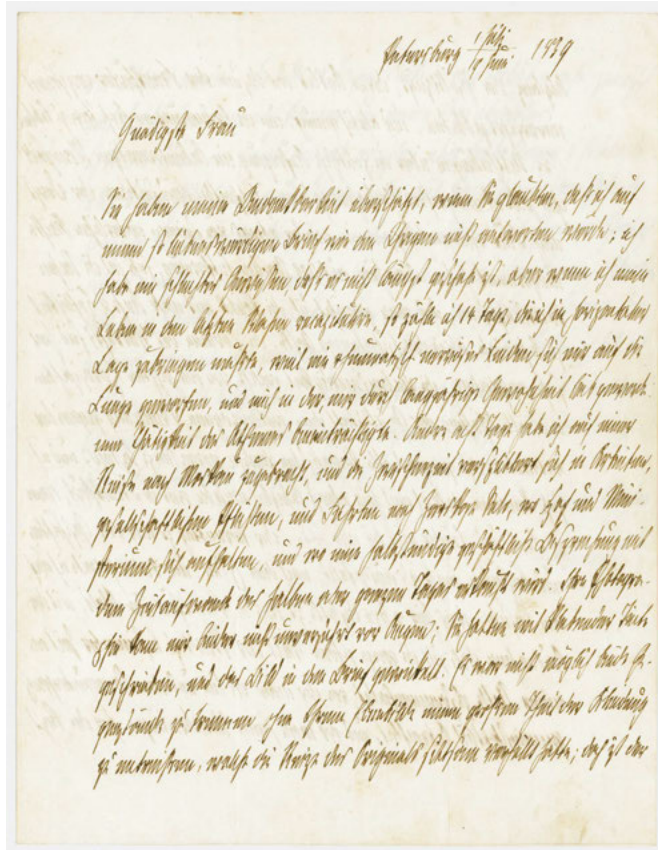 Petersburg 1 Juli / Juni
Gnädigste Frau
Sie haben meine Undankbarkeit überschätzt, wenn Sie glaubten, daß ich auf
einen so liebenswürdigen Brief wie den Ihrigen nicht antworten werde; ich
habe am daß es nicht längst geschah ist, aber wenn ich mein
Leben in den letzten Wochen recapitulire, so zähle ich 14 Tage, die ich in horizontaler
Lage zubringen mußte, weil ein rheumatisch nervöses Leiden sich mir auf die
Lunge geworfen, und mich in der mir durch langjährige Gewohnheit lieb geworde-
nen Thätigkeit des Athmens beeinträchtigte. Andre acht Tage habe ich auf einer
Reise nach Moskau zugebracht, und die Zwischenzeit zersplittert sich in Arbeiten,
gesellschaftlichen Pflichten, und Fahrten nach Zarskoe Selo, wo Hof und Mini-
sterium sich aufhalten, und wo eine halbstündige geschäftliche Besprechung mit
dem Zeitaufwande des halben oder ganzen Tages erkauft wird. Ihre Photogra-
phie kam mir leider nicht unversehrt vor Augen; Sie hatten mit klebender Tinte
geschrieben, und das Bild in den Brief gewickelt. Es war nicht möglich beide Ge-
genstände zu trennen ohne Ihrem Ebenbilde einen großen Theil der Kleidung
zu entreißen, welche die Reize des Originals verhüllt hatte; das ist der